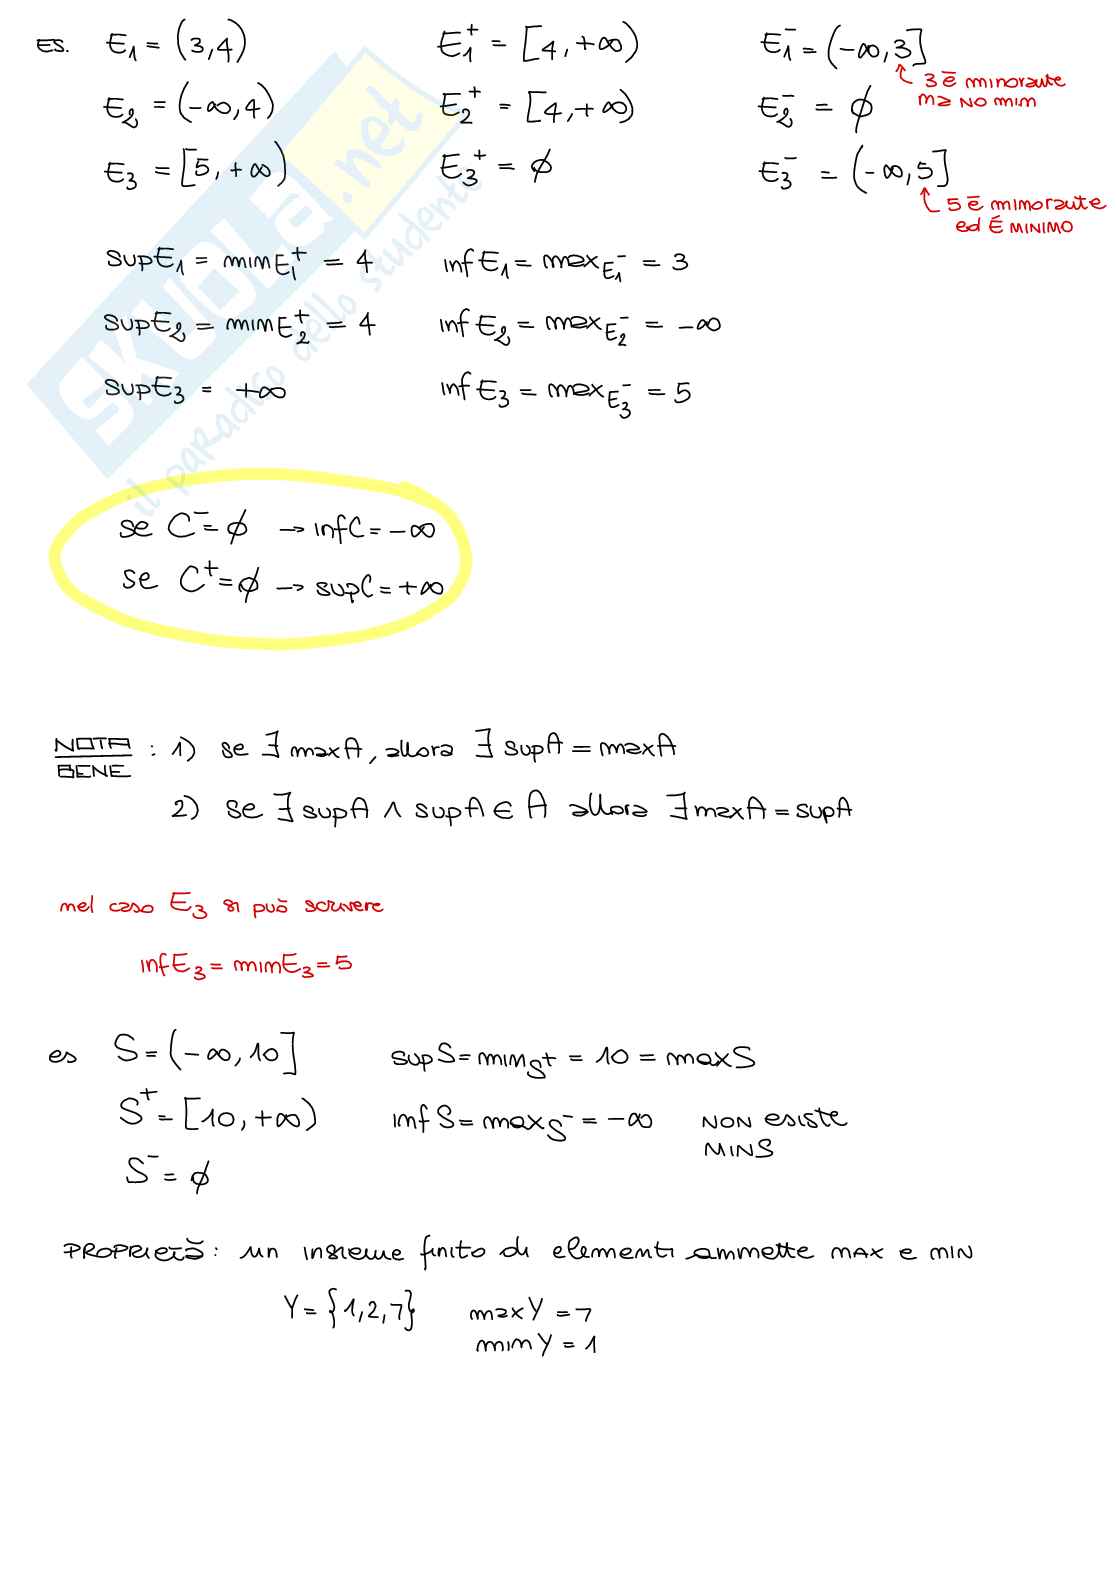 ES. E₁ = (3,4) E₁⁺ = [4,+∞) E₁⁻ = (-∞,3]
3 è minorante
ma NO min
E₂ = (-∞,4) E₂⁺ = [4,+∞) E₂⁻ = ∅
E₃ = [5,+∞) E₃⁺ = ∅ E₃⁻ = (-∞,5]
5 è minorante
ed É MINIMO
supE₁ = min E₁⁺ = 4 inf E₁ = max E₁⁻ = 3
supE₂ = min E₂⁺ = 4 inf E₂ = max E₂⁻ = -∞
supE₃ = +∞ inf E₃ = max E₃⁻ = 5
se C⁻ = ∅ → infC = -∞
se C⁺ = ∅ → supC = +∞
NOTA BENE : 1) se ∃ maxA, allora ∃ supA = maxA
2) se ∃ supA ∧ supA ∈ A allora ∃ maxA = supA
nel caso E₃ si può scrivere
infE₃ = minE₃ = 5
es S = (-∞,10] sup S = min S⁺ = 10 = maxS
S⁺ = [10,+∞) inf S = max S⁻ = -∞ NON esiste
MINS
S⁻ = ∅
PROPRIETÀ: un insieme finito di elementi ammette MAX e MIN
Y = {1,2,7} max Y = 7
min Y = 1
SKUOLA.net
il paradiso dello studente